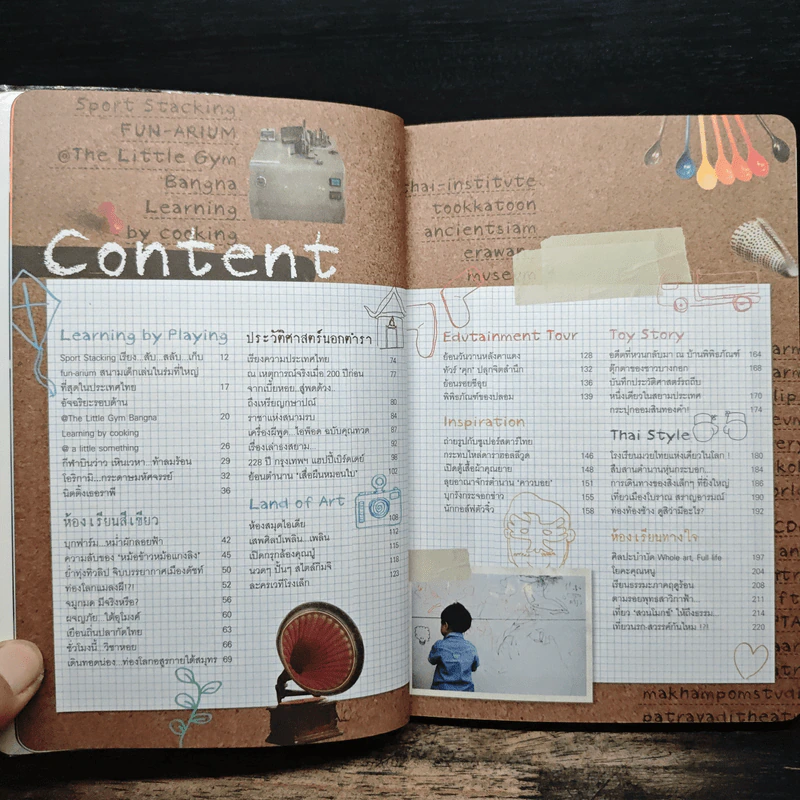 Sport Stacking
FUN-ARIUM
@The Little Gym
Bangna
Learning
by cooking
Content
Learning by Playing
Sport Stacking เรียง...ลับ...สลับ...เก็บ 12
fun-arium สนามเด็กเล่นในร่มที่ใหญ่
ที่สุดในประเทศไทย 17
อัจฉริยะรอบด้าน
@The Little Gym Bangna 20
Learning by cooking
@ a little something 26
กีฬาบินว่าว เหินเวหา...ท้าลมร้อน 29
โอริกามิ...กระดาษมหัศจรรย์ 32
นิตติ้งเธอราพี 36
ห้องเรียนสีเขียว
บุกฟาร์ม...หม่ำผักลอยฟ้า 42
ความลับของ 'หม้อข้าวหม้อแกงลิง' 45
ย่ำทุ่งทิวลิป จิบบรรยากาศเมืองดัทช์ 50
ท่องโลกแมลงผี!?! 52
จมูกมด มีจริงหรือ? 56
ผจญภัย 'ใต้อุโมงค์' 60
เยือนถิ่นปลากัดไทย 63
ชั่วโมงนี้..วิชาหอย 66
เดินทอดน่อง...ท่องโลกอสูรกายใต้สมุทร 69
ประวัติศาสตร์นอกตำรา
เรียงความประเทศไทย 74
ณ เหตุการณ์จริงเมื่อ 200 ปีก่อน 77
จากเบี้ยหอย...สู่พดด้วง..
ถึงเหรียญกษาปณ์ 80
ราชาแห่งสนามรบ 84
เครื่องผีพูด...ไอพ็อด ฉบับคุณทวด 87
เรื่องเล่าองสยาม... 92
228 ปี กรุงเทพฯ แฮปปี้เบิร์ดเดย์ 98
ย้อนตำนาน "เสื่อผืนหมอนใบ" 102
Land of Art
ห้องสมุดไอเดีย 108
เสพศิลป์เพลิน...เพลิน 112
เปิดกรุกล้องคุณปู่ 115
นวดๆ ปั้นๆ สไตล์กิมจิ 118
ละครเวทีโรงเล็ก 123
thai-institute
tookkatoon
ancientsiam
erawan
museum
Edutainment Tour
ย้อนวันวานหลังคาแดง 128
ทัวร์ 'คุก' ปลุกจิตสำนึก 132
ย้อนรอยซีอุย 136
พิพิธภัณฑ์ของปลอม 139
Inspiration
ถ่ายรูปกับซูเปอร์สตาร์ไทย
กระทบไหล่ดาราฮอลลีวูด 146
เปิดตู้เสื้อผ้าคุณยาย 148
ลุยอาณาจักรตำนาน 'คาวบอย' 151
บุกรังกระจอกข่าว 155
นักกอล์ฟตัวจิ๋ว 158
Toy Story
อดีตที่หวนกลับมา ณ บ้านพิพิธภัณฑ์ 164
ตุ๊กตาของชาวบางกอก 168
บันทึกประวัติศาสตร์รถถีบ
หนึ่งเดียวในสยามประเทศ 170
กระปุกออมสินทองคำ! 174
Thai Style
โรงเรียนมวยไทยแห่งเดียวในโลก ! 180
สืบสานตำนานหุ่นกระบอก... 184
การเดินทางของสิ่งเล็กๆ ที่ยิ่งใหญ่ 186
เที่ยวเมืองโบราณ สราญอารมณ์ 190
ท่องท้องช้าง ดูสิว่ามีอะไร? 192
ห้องเรียนทางใจ
ศิลปะบำบัด Whole art, Full life 197
โยคะคุณหนู 204
เรียนธรรมะภาคฤดูร้อน 208
ตามรอยพุทธสาวิกาฟ้า... 211
เที่ยว 'สวนโมกข์' ให้ถึงธรรม... 214
เที่ยวนรก-สวรรค์กันไหม !?! 220
makhampomstudi
patravaditheat